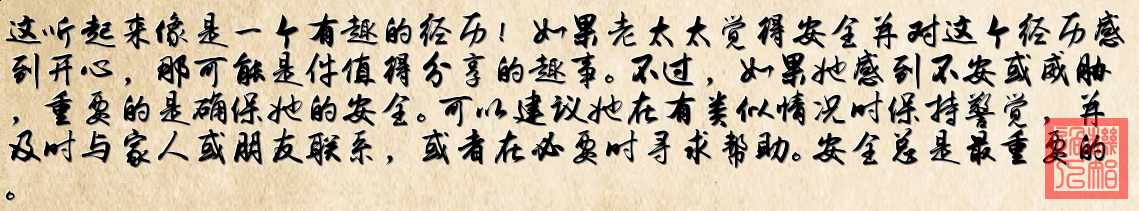 这听起来像是一个有趣的经历！如果老太太觉得安全并对这个经历感
到开心，那可能是件值得分享的趣事。不过，如果她感到不安或威胁
，重要的是确保她的安全。可以建议她在有类似情况时保持警觉，并
及时与家人或朋友联系，或者在必要时寻求帮助。安全总是最重要的
。